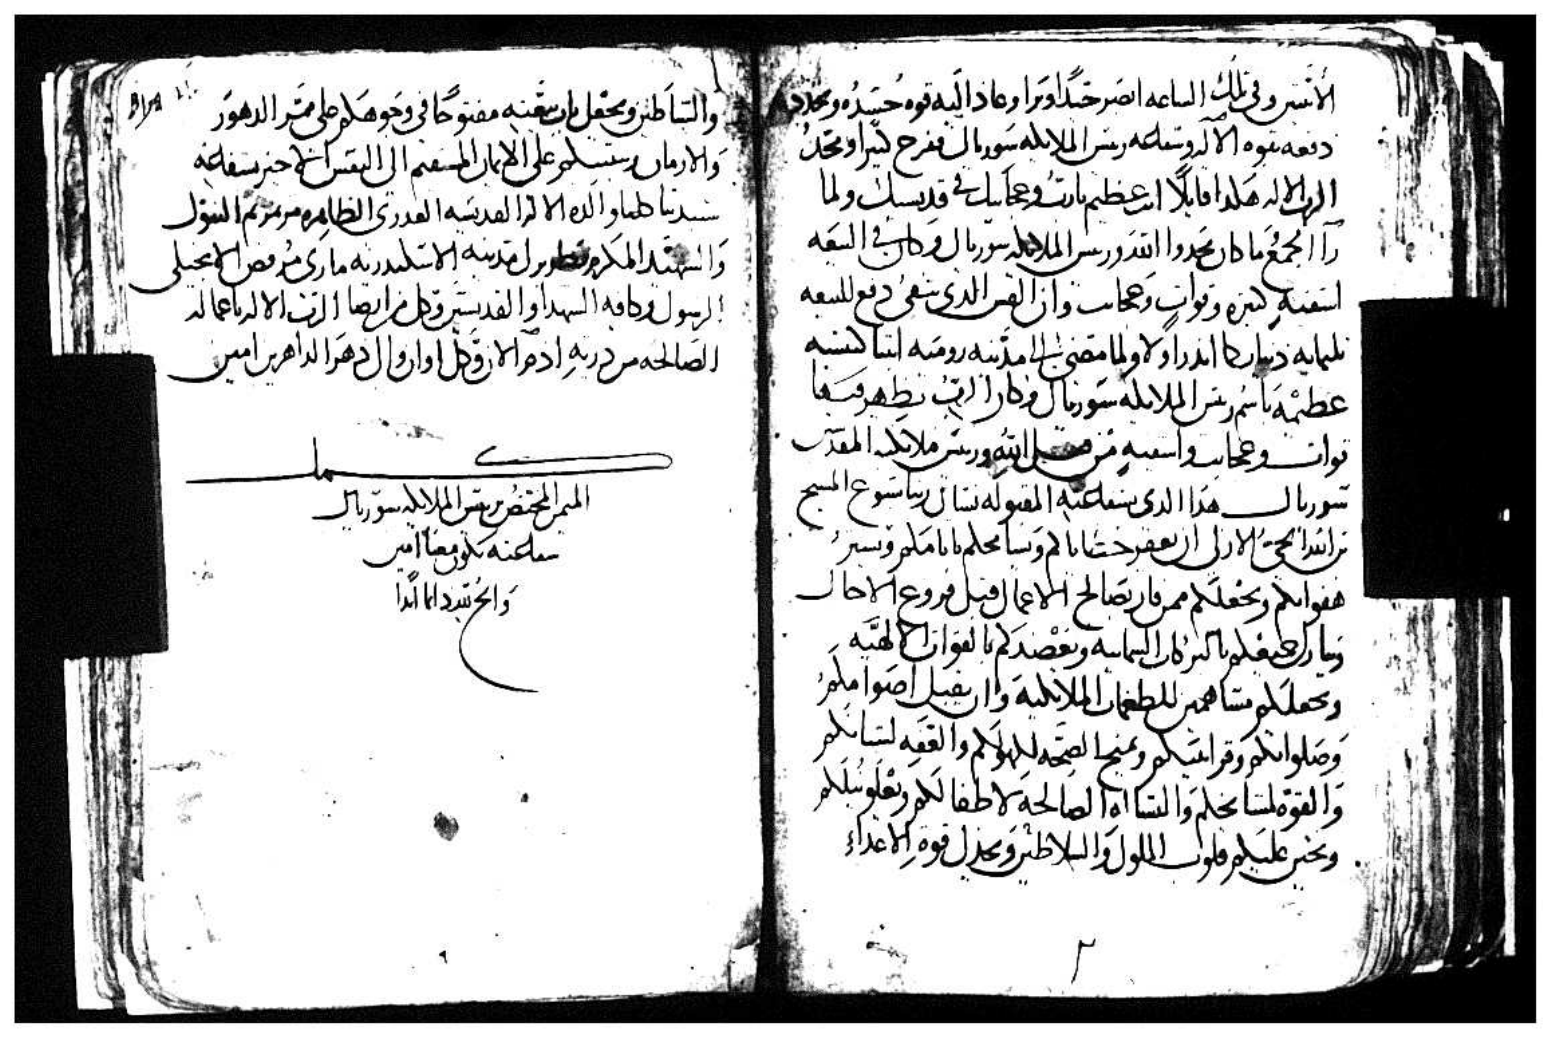 الانس وفي تلك الساعه ابصر جيدا وعاد اليه قوه جسده
دفعه بقوه الاله وشفاعه ريس الملايكه سوريال ففرح كثيرا ومجد
الرب الاله هكدا قايلا انت عظيم يارب وعجايبك في قديسيك ولما
راا الجمع ما كان مجدوا الله وريس الملايكه سوريال وكان في البيعه
اشفيه كثيره وقوات وعجايب وان القس الدي شفي دفع للبيعه
تلتمايه دينار كما اندر اولا ولما مضى الى مدينه روميه ابتنا كنيسه
عظيمه باسم ريس الملايكه سوريال وكان الرب يظهر فيها
قوات وعجايب واشفيه من قبل الله وريس ملايكته المقدس
سوريال هدا الدي بشفاعته المقبوله نسال ربنا يسوع المسيح
بن الله الحي الازلي ان يغفر خطاياكم ويسامحكم باثامكم ويستر
هفواتكم ويجعلكم ممن فاز بصالح الاعمال قبل فروغ الاجال
ويبارك جميعكم بالبركات السماييه ويعضدكم بالقوات الالهيه
ويجعلكم مساهمين للطغمات الملايكيه وان يقبل اصوامكم
وصلواتكم وقرابينكم ويمنح الصحه لكهولكم والعفه لشبانكم
والقوه لمشايخكم والنشااه الصالحه لاطفالكم
ويحنن عليكم قلوب الملوك والسلاطين ويخدل قوه الاعداء
والشياطين ويجعل باب بيعته مفتوحا في وجوهكم على ممر الدهور
والازمان ويتبتكم على الايمان المستقيم الى النفس الاخير بشفاعه
سيدتنا كلنا والده الاله القديسه العدرى الطاهره مرتمريم البتول
والشهيد المكرم مدينه الاسكندريه ماري مرقص الانجيلي
الرسول وكافه الشهدا والقديسين وكل من ارضا الرب الاله باعماله
الصالحه من دريه ادم الان وكل اوان وال دهر الداهرين امين
كمل
الميمر المختص بريس الملايكه سوريال
شفاعته تكون معنا امين
والمجد لله دايما ابدا